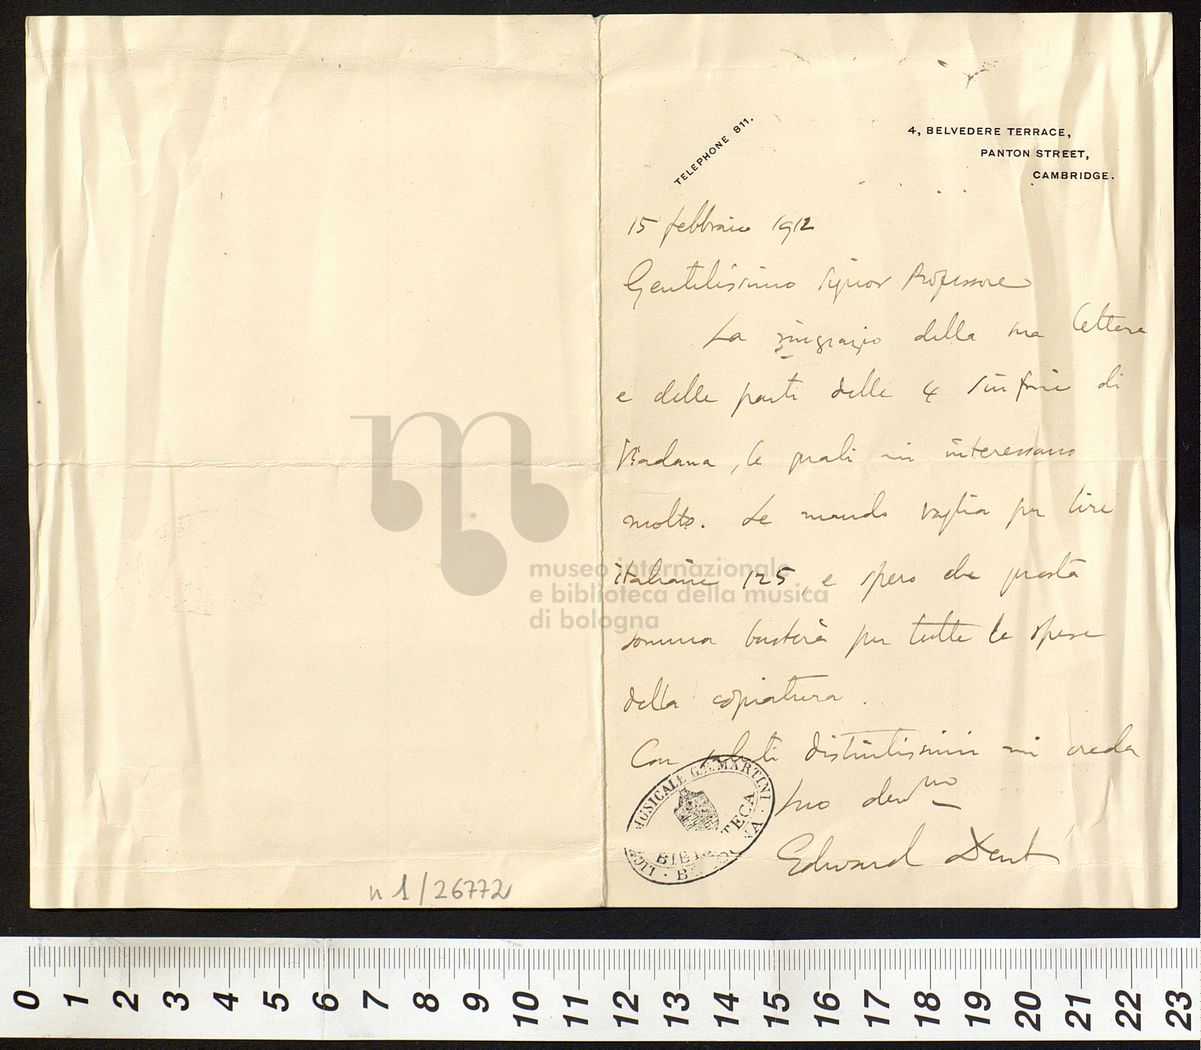 TELEPHONE 811.
4, BELVEDERE TERRACE,
PANTON STREET,
CAMBRIDGE.
15 febbraio 1912
Gentilissimo Signor Professore
La ringrazio della sua lettera
e delle parti delle 4 Sinfonie di
Viadana, le quali mi interessano
molto. Le mando vaglia per lire
italiane 125, e spero che questa
somma basterà per tutte le spese
della copiatura.
Con saluti distintissimi mi creda
suo devmo
Edward Dent
LICEO MUSICALE G.B. MARTINI
BIBLIOTECA
BOLOGNA
n 1/26772
museo internazionale
e biblioteca della musica
di bologna
0 1 2 3 4 5 6 7 8 9 10 11 12 13 14 15 16 17 18 19 20 21 22 23